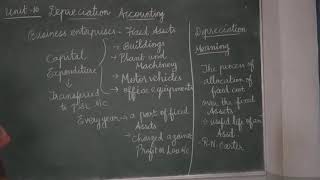 Unit-10 Depreciation Accounting
Business enterprises - Fixed Assets
Capital
Expenditure
↓
Transferred
to P&L A/c
→ Buildings
→ Plant and
Machinery
→ Motor vehicles
→ Office equipments
Every year → a part of fixed
Assets
↓
Charged against
Profit or Loss A/c
Depreciation
Meaning
The process of
allocation of
fixed cost
over the fixed Assets
useful life of an
Asset.
- R.N. Carter